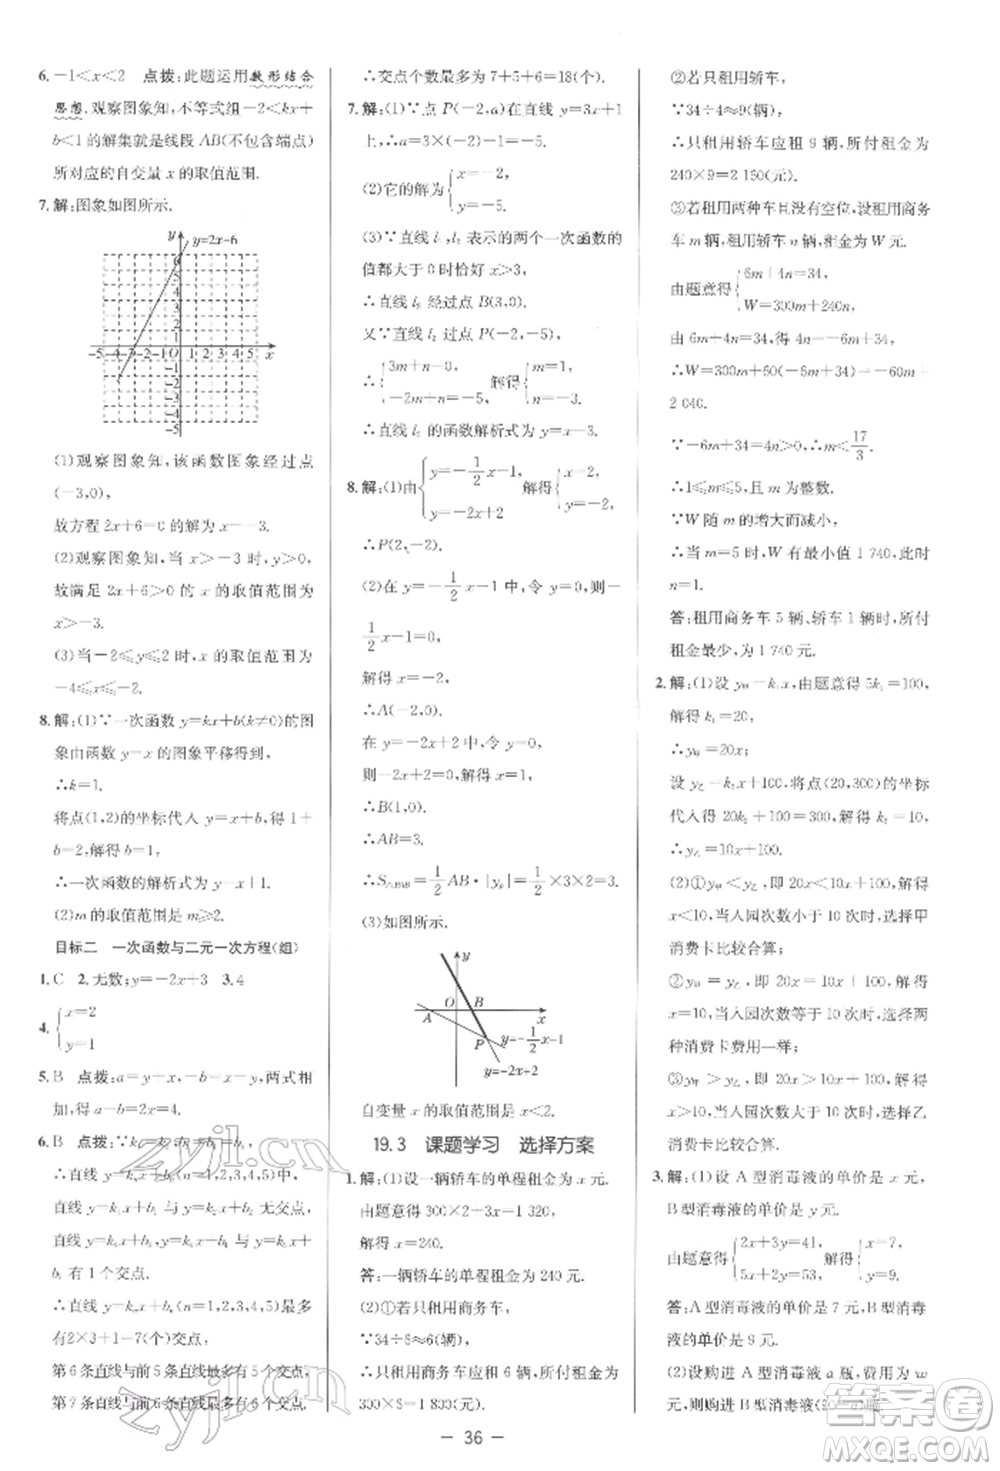 6. -1<x<2 点拨:此题运用数形结合
思想.观察图象知,不等式组-2<kx+
b<1的解集就是线段AB(不包含端点)
所对应的自变量x的取值范围.
7. 解:图象如图所示.
y
y=2x-6
-5-4-3-2-1O 1 2 3 4 5 x
(1)观察图象知,该函数图象经过点
(-3,0),
故方程2x+6=0的解为x=-3.
(2)观察图象知,当x>-3时,y>0,
故满足2x+6>0的x的取值范围是
x>-3.
(3)当-2≤y≤2时,x的取值范围是
-4≤x≤-2.
8. 解:(1)∵一次函数y=kx+b(k≠0)的图
象由函数y=x的图象平移得到,
∴k=1.
将点(1,2)的坐标代入y=x+b,得1+
b=2,解得b=1,
∴一次函数的解析式为y=x|1.
(2)m的取值范围是m≥2.
目标二 一次函数与二元一次方程(组)
1. C 2. 无数;y=-2x+3 3. 4
4. { x=2
y=1
5. B 点拨:a=y+x,b=y-x,两式相
加,得a-b=2y=4.
6. B 点拨:
∴直线y=kₙx+bₙ(n=1,2,3,4,5)最
有1个交点.
∴直线y=kₙx+bₙ(n=1,2,3,4,5)最多
有2×3+1=7(个)交点,
第6条直线与前5条直线最多有5个交点,
第7条直线与前6条直线最多有6个交点,
∴交点个数最多有7+5+6=18(个).
7. 解:(1)∵点P(-2,a)在直线y=3x+1
上,∴a=3×(-2)+1=-5.
(2)它的解为{ x=-2,
y=-5.
(3)∵直线l₁,l₂表示的两个一次函数的
值都大于0时恰好x>3,
∴直线l₂经过点B(3,0).
又∵直线l₂过点P(-2,-5),
∴{ 3m+n=0, 解得{ m=1,
-2m+n=-5, n=-3.
∴直线l₂的函数解析式为y=x-3.
8. 解:(1)由{ y=-1/2x-1, 解得{ x=2,
y=-2x+2 y=-2.
∴P(2,-2).
(2)在y=-1/2x-1中,令y=0,则-
1/2x-1=0,
解得x=-2,
∴A(-2,0).
在y=-2x+2中,令y=0,
则-2x+2=0,解得x=1,
∴B(1,0).
∴AB=3.
∴S△PAB=1/2AB·|yₚ|=1/2×3×2=3.
(3)如图所示.
y
O B
A x
P y=-1/2x-1
y=-2x+2
自变量x的取值范围是x<2.
19.3 课题学习 选择方案
1. 解:(1)设一辆轿车的单程租金为x元.
由题意得300×2+3x=1 320,
解得x=240.
答:一辆轿车的单程租金为240元.
(2)①若只租用商务车,
∵34÷6≈6(辆),
∴只租用商务车应租6辆,所付租金为
300×6=1 800(元).
②若只租用轿车,
∵34÷4≈9(辆),
∴只租用轿车应租9辆,所付租金为
240×9=2 160(元).
③若租用两种车且没有空位,设租用商务
车m辆,租用轿车n辆,租金为W元.
由题意得{ 6m+4n=34,
W=300m+240n.
由6m+4n=34,得4n=-6m+34,
∴W=300m+60(-6m+34)=-60m+
2 040.
∵-6m+34=4n>0,∴m<17/3.
∴1≤m≤5,且m为整数.
∵W随m的增大而减小,
∴当m=5时,W有最小值1 740,此时
n=1.
答:租用商务车5辆、轿车1辆时,所付
租金最少,为1 740元.
2. 解:(1)设y甲=k₁x,由题意得5k₁=100,
解得k₁=20,
∴y甲=20x;
设y乙=k₂x+100,把点(20,300)的坐标
代入得20k₂+100=300,解得k₂=10,
∴y乙=10x+100.
(2)①y甲<y乙,即20x<10x+100,解得
x<10,当入园次数小于10次时,选择甲
消费卡比较合算;
②y甲=y乙,即20x=10x+100,解得
x=10,当入园次数等于10次时,选择两
种消费卡费用一样;
③y甲>y乙,即20x>10x+100,解得
x>10,当入园次数大于10次时,选择乙
消费卡比较合算.
3. 解:(1)设A型消毒液的单价是x元,
B型消毒液的单价是y元.
由题意得{ 2x+3y=41, 解得{ x=7,
5x+2y=53, y=9.
答:A型消毒液的单价是7元,B型消毒
液的单价是9元.
(2)设购进A型消毒液a瓶,费用为w
元,则购进B型消毒液(
— 36 —
zyjl.cn
答案圈
MXQE.COM